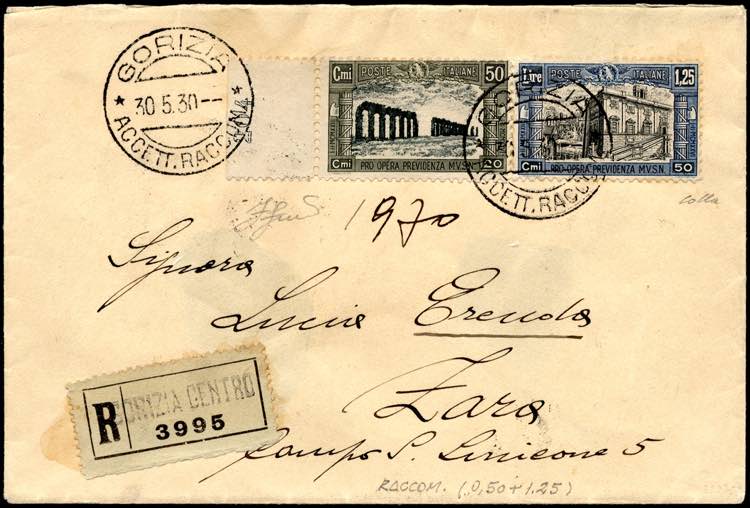 GORIZIA
* 30.5.30-- *
ACCETT. RACCOM
Cmi POSTE ITALIANE 50
Cmi PRO OPERA PREVIDENZA M.V.S.N. 20
Lire POSTE ITALIANE 1,25
Cmi PRO OPERA PREVIDENZA M.V.S.N. 50
ACCETT. RACCOM
colla
1970
Signora
Lucia
Zara
Campo S. Simeone 5
R GORIZIA CENTRO
3995
RACCOM. (0,50+1.25)